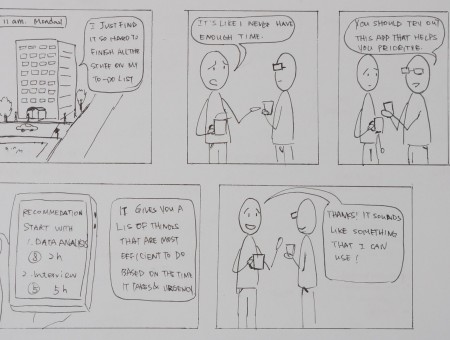 11 am. Monday
I JUST FIND
IT SO HARD TO
FINISH ALL THE
STUFF ON MY
TO-DO LIST
IT'S LIKE I NEVER HAVE
ENOUGH TIME.
YOU SHOULD TRY OUT
THIS APP THAT HELPS
YOU PRIORITER
RECOMMEDATION
START WITH
1. DATA ANALYSIS
⑧ 2h
2. Interview
⑤ 5h
IT GIVES YOU A
LIS OF THINGS
THAT ARE MOST
EFFICIENT TO DO
BASED ON THE TIME
IT TAKES & URGENCY
THANKS! IT SOUNDS
LIKE SOMETHING
THAT I CAN
USE!